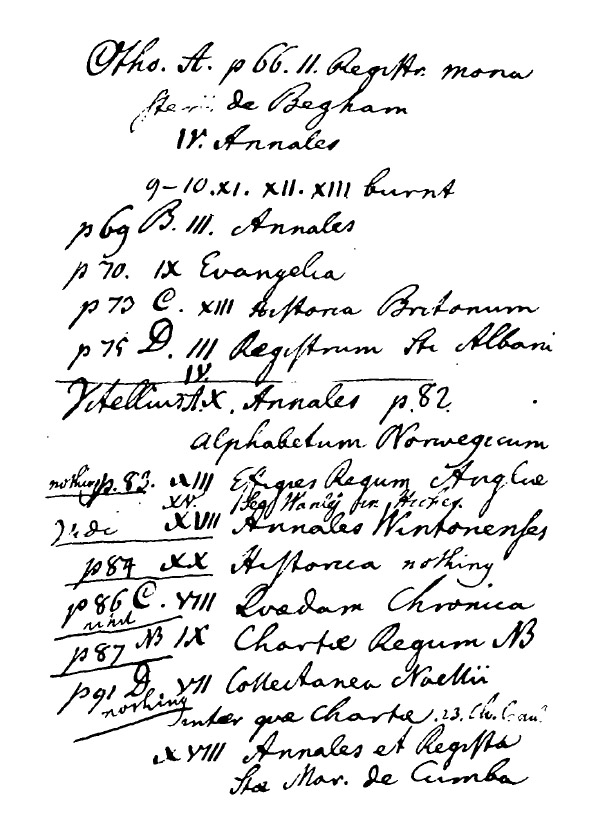 Otho. A. p 66. II. Registr. mona
sterii de Begham
IV. Annales
9-10. XI. XII. XIII burnt
p 69 B. III. Annales
p 70. IX Evangelia
p 73 C. XIII Historia Britonum
p 75 D. III Registrum Sti Albani
IV.
Vitellius A. X. Annales p. 82.
Alphabetum Norwegicum
nothing p. 83. XIII Effigies Regum Angliæ
XV. Wanley in Hickes.
Vide XVII Annales Wintonenses
p 84 XX Historica nothing
p 86 C. VIII Quædam Chronica
p 87 NB IX Chartæ Regum NB
p 91 D. VII Collectanea Noellii
nothing inter quæ Chartæ. 23.
XVIII Annales et Regista
Stæ Mar. de Cumba